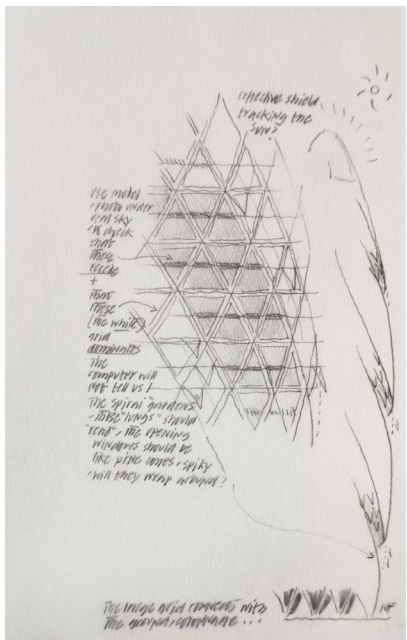 reflective shield
tracking the
sun?
use model
photo under
real sky
to check
that
these
recede
+
that
these
(the white)
grid
dominates
The
computer will
not tell us!
The spiral "gardens
-these "lungs" should
"read", the opening
windows should be
like pine cones, spiky
-will they wrap around?
The large grid connects with
the ground, colonnade...
NF